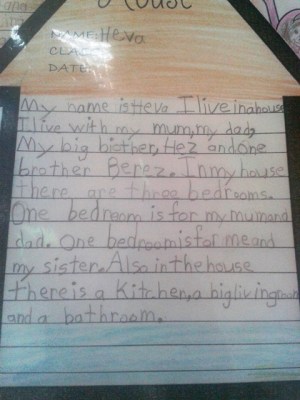 House
NAME: Heva
CLASS
DATE
My name is Heva I live in a house
I live with my mum, my dad,
My big brother, Hez and one
brother Berez. In my house
there are three bedrooms.
One bedroom is for my mum and
dad. One bedroom is for me and
my sister. Also in the house
there is a kitchen, a big living room
and a bathroom.